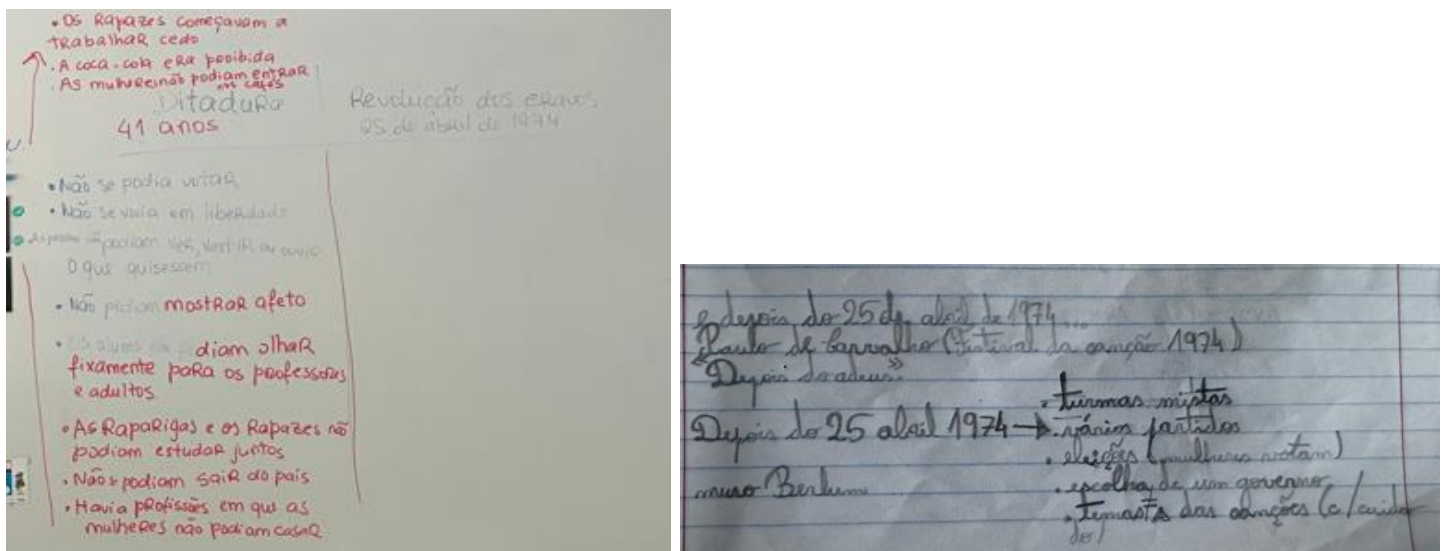 • Os Rapazes começavam a
trabalhar cedo
• A coca-cola era proibida
. As mulheres não podiam entrar
nos cafés
Ditadura
41 anos
Revolução dos cravos
25 de abril de 1974
• Não se podia votar
• Não se vivia em liberdade
As pessoas não podiam ver, vestir ou ouvir
o que quisessem
• Não podiam mostrar afeto
• Os alunos não podiam olhar
fixamente para os professores
e adultos.
• As Raparigas e os Rapazes não
podiam estudar juntos
• Não podiam sair do país
• Havia profissões em que as
mulheres não podiam casar
E depois do 25 de abril de 1974...
Paulo de Carvalho (Festival da canção 1974)
"Depois do adeus"
Depois do 25 abril 1974 → • turmas mistas
• vários partidos
• eleições (mulheres votam)
muro Berlim
• escolha de um governo
• temas das canções (c/cuida
do)